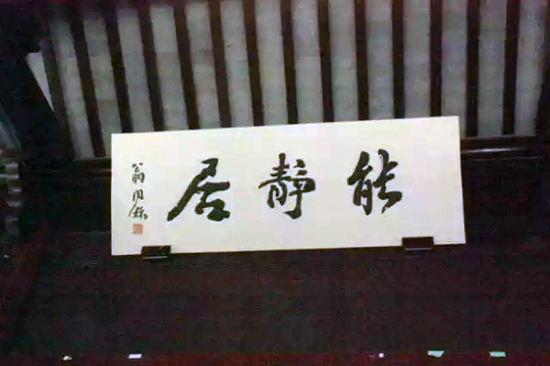 能靜居
翁同龢